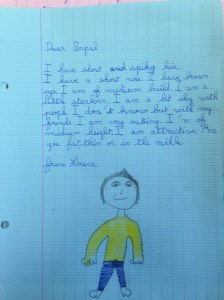 Dear Penpal
I have short and spiky hair
I have a short nose. I have brown
eye I am of medium build. I am a
little stubborn. I am a bit shy with
people I don't know but with my
friends I am very I'm of
medium height. I am attractive. Are
you fat, thin or in the middle
from